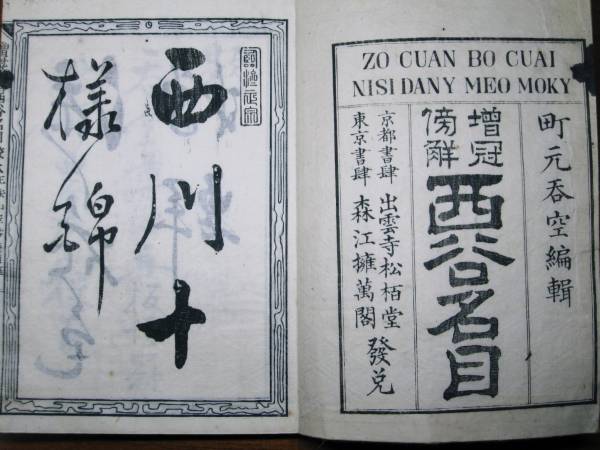 ZO CUAN BO CUAI
NISI DANY MEO MOKY
町元呑空編輯
增冠
傍解
西谷名目
京都書肆 出雲寺松栢堂
東京書肆 森江擁萬閣
發兌
西川十
樣錦